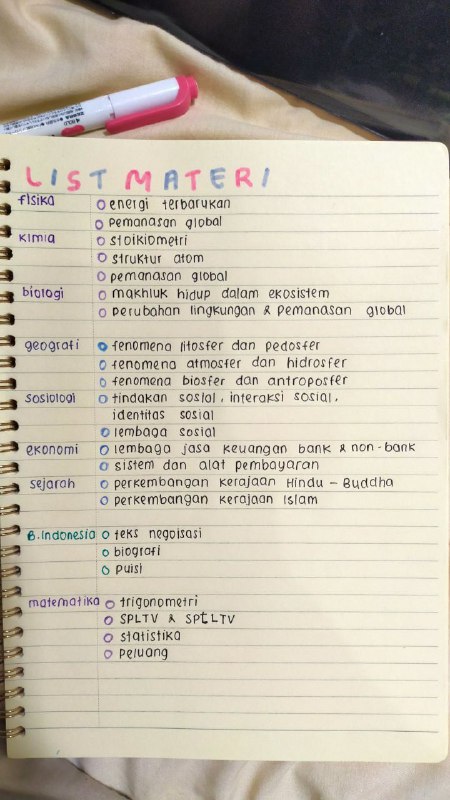 LIST MATERI
fisika o energi terbarukan
o pemanasan global
kimia o stoikiometri
o struktur atom
o pemanasan global
biologi o makhluk hidup dalam ekosistem
o perubahan lingkungan & pemanasan global
geografi o fenomena litosfer dan pedosfer
o fenomena atmosfer dan hidrosfer
o fenomena biosfer dan antroposfer
sosiologi o tindakan sosial, interaksi sosial,
identitas sosial
o lembaga sosial
ekonomi o lembaga jasa keuangan bank & non-bank
o sistem dan alat pembayaran
sejarah o perkembangan kerajaan Hindu - Buddha
o perkembangan kerajaan Islam
B.Indonesia o teks negoisasi
o biografi
o puisi
matematika o trigonometri
o SPLTV & SPtLTV
o statistika
o peluang